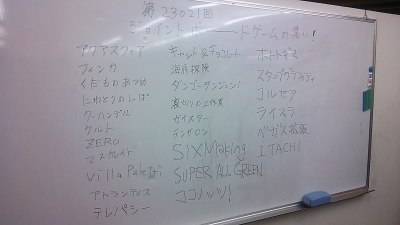 第23021回
ジョイントボードゲームの集い!
アクアスフィア
フィンカ
くだものあつめ
にわとりのしっぽ
クーハンデル
ケルト
ZERO
マスカレイド
Villa Paletti
アトランティス
テレパシー
キャット&チョコレート
海底探険
ダンゴーダンジョン!
裏切りの工作員
ガイスター
テンサロン
SIX Making
SUPER ALL GREEN
ココナッツ!
ホトトギス
スタンプグラフィティ
コルセア
ライスラ
ペガサス拡張
ITACHI